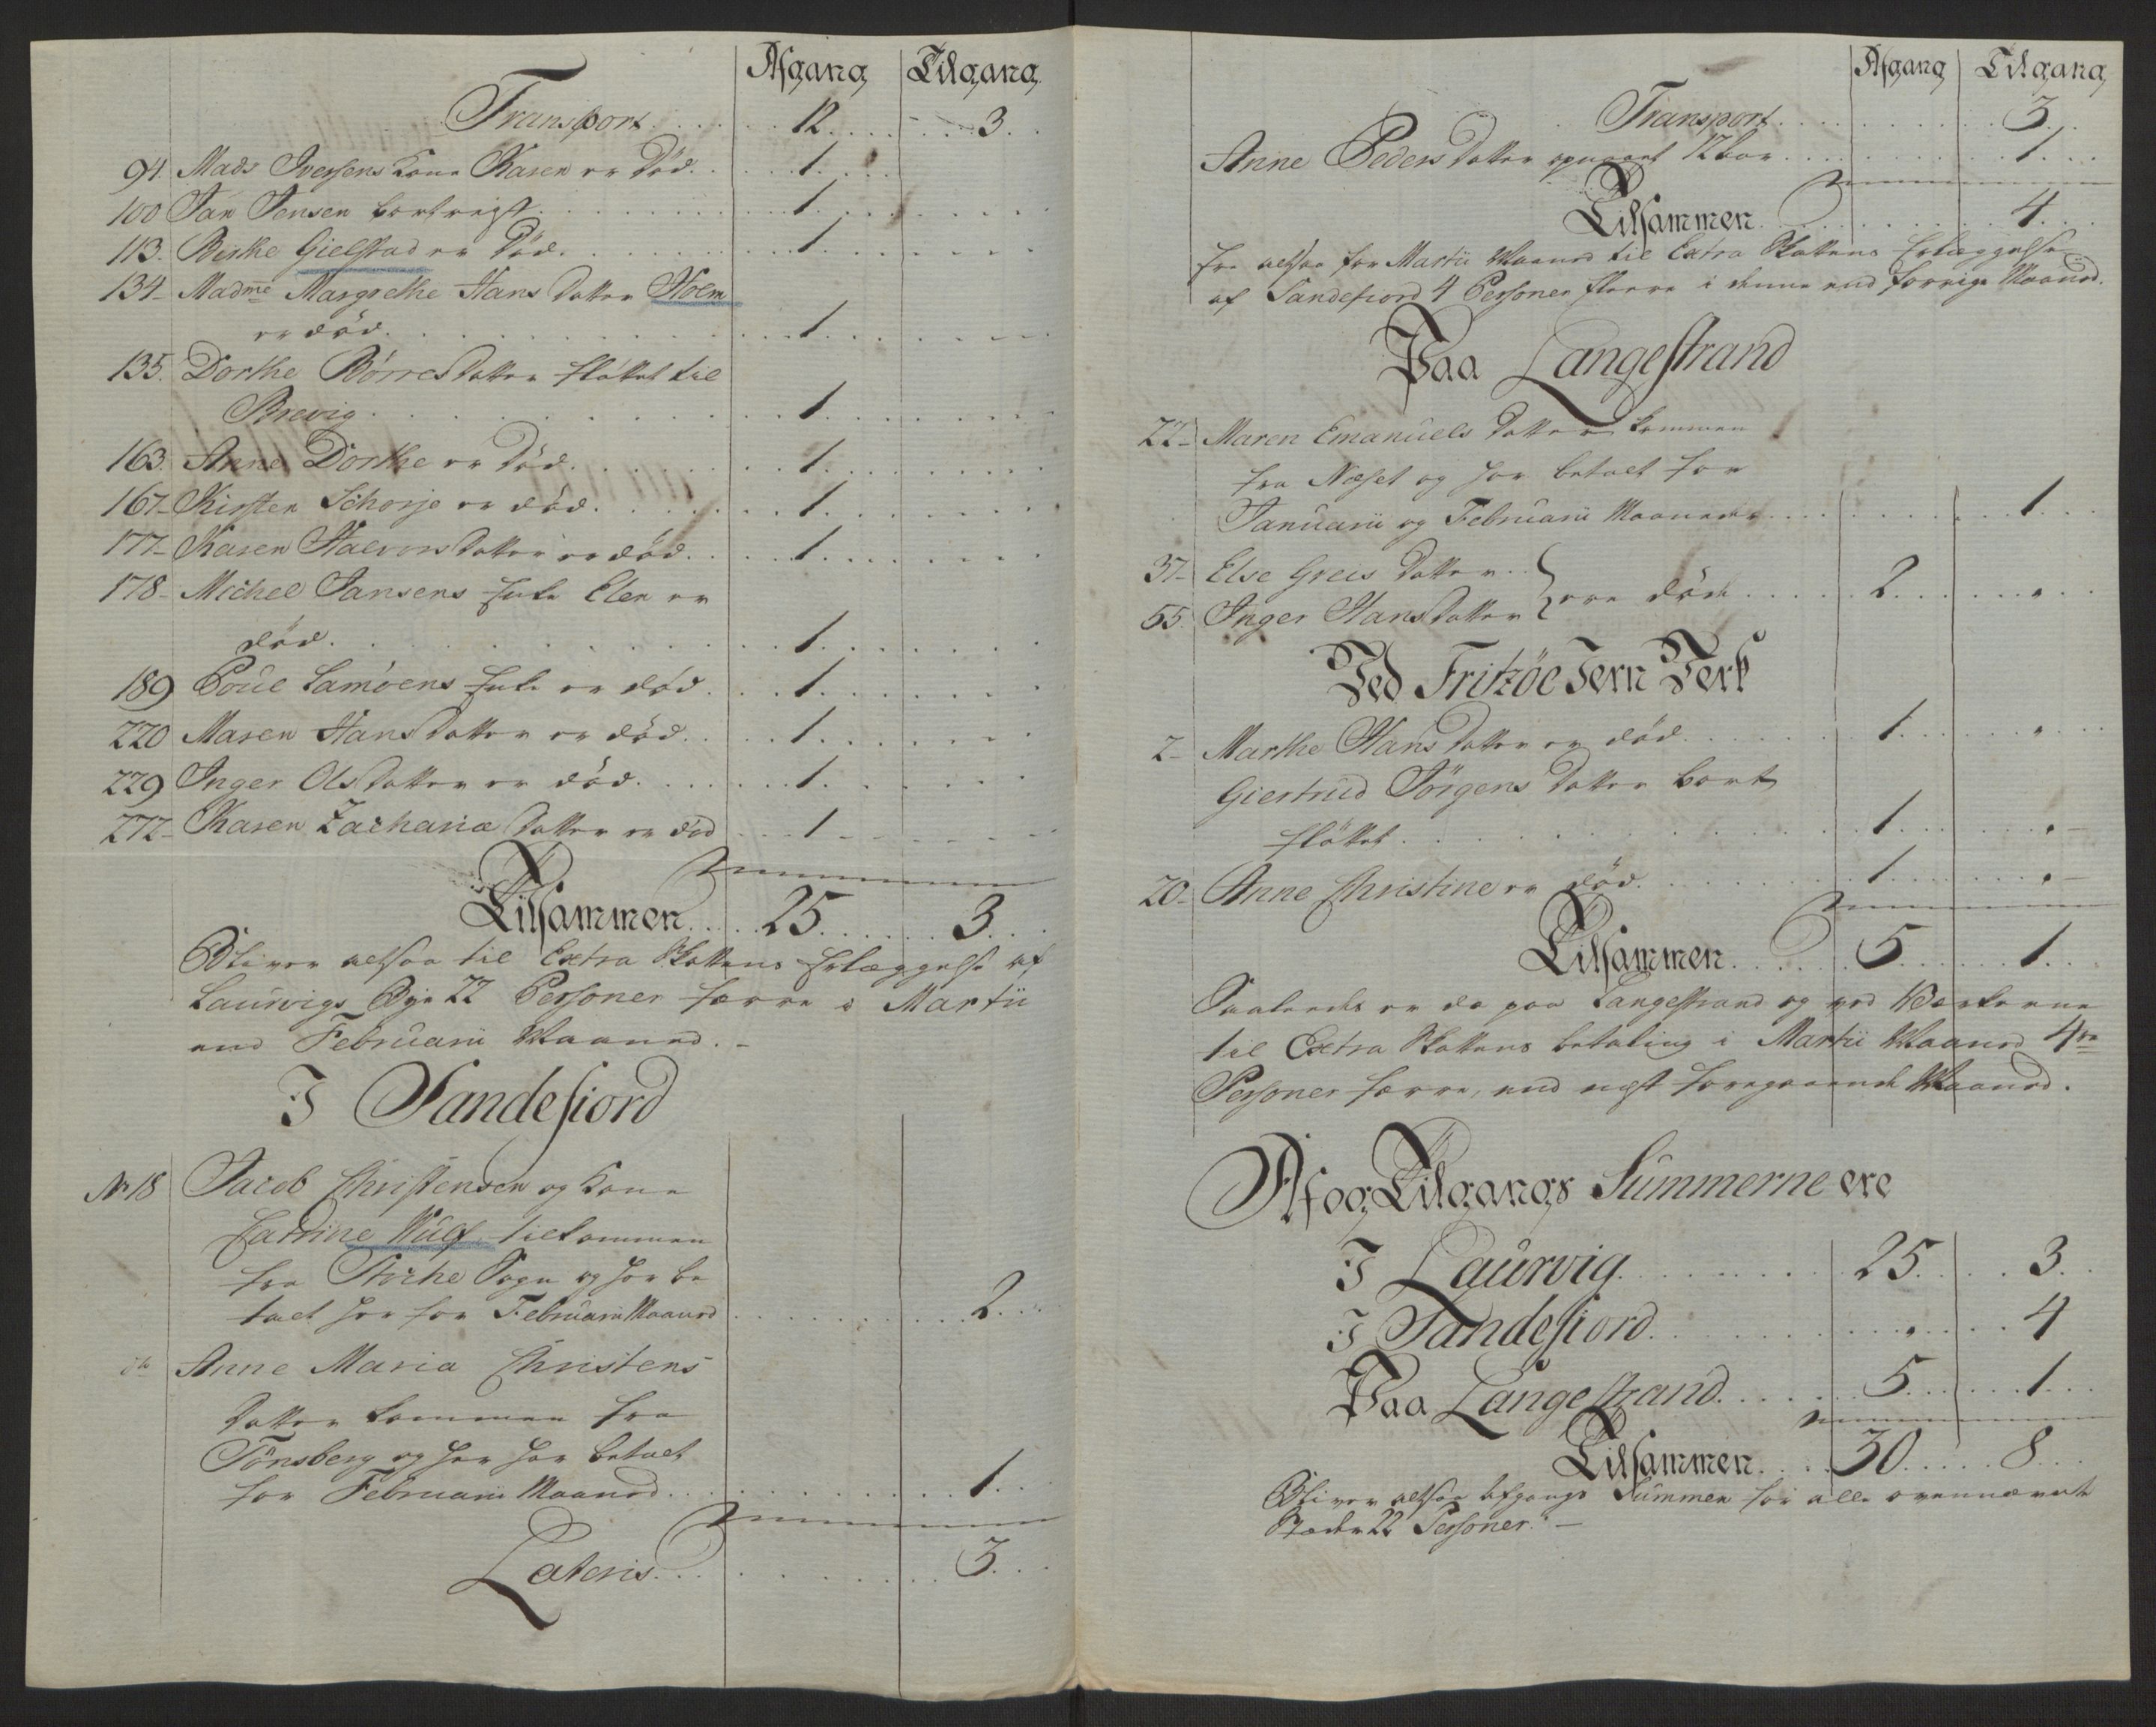 Afgang Tilgang
Transport 12 3
94. Mads Iversens Kone Karen er Død 1
100 Jan Jensen bortreist 1
113. Birthe Gielstad er Død 1
134 Madme Margrethe Hans Datter Holm
er død 1
135. Dorthe Børres Datter fløttet til
Brevig 1
163. Anne Dorthe er Død 1
167 Kirsten Schorje er død 1
177 Karen Halvors Datter er død 1
178 Michel Jansens Enke Elen er
død 1
189 Poul Lamøens Enke er død 1
220 Maren Hans Datter er død 1
229 Inger Ols Datter er død 1
272 Karen Zachariæ Datter er død 1
Tilsammen 25 3
Bliver altsaa til Extra Skattens Erlæggelse af
Laurvigs Bye 22 Personer færre i Martii
end Februarii Maaned.
I Sandefiord
No 18 Jacob Christensen og Kone
Cathrine Wulf tilkommen
fra Stokke Sogn og har be
talt her for Februarii Maaned 2
do Anne Maria Christens
Datter kommen fra
Tønsberg og har her betalt
for Februarii Maaned 1
Lateris 3
Afgang Tilgang
Transport 3
Anne Peders Datter 12 Aar 1
Tilsammen 4
Er altsaa for Martii Maaned til Extra Skattens Erlæggelse
af Sandefiord 4 Personer fleere i denne end forrige Maaned.
Paa Langestrand
22 Maren Emanuels Datter kommen
fra Næset og har betalt for
Januarii og Februarii Maaneder 1
37 Else Greis Datter
55. Inger Hans Datter } ere døde 2
Ved Fritzøe Jern Verk
2 Marthe Hans Datter er død 1
Giertrud Jörgens Datter bort
fløttet 1
20 Anne Christine er død 1
Tilsammen 5 1
Saaledes er da paa Langestrand og ved Værkerne
til Extra Skattens betaling i Martii Maaned 4re
Personer færre, end nest foregaaende Maaned.
Af og Tilgangs Summerne ere
I Laurvig 25 3
I Sandefiord 4
Paa Langestrand 5 1
Tilsammen 30 8
Bliver altsaa Afgangs Summen for alle ovennævnte
Stæder 22 Personer.